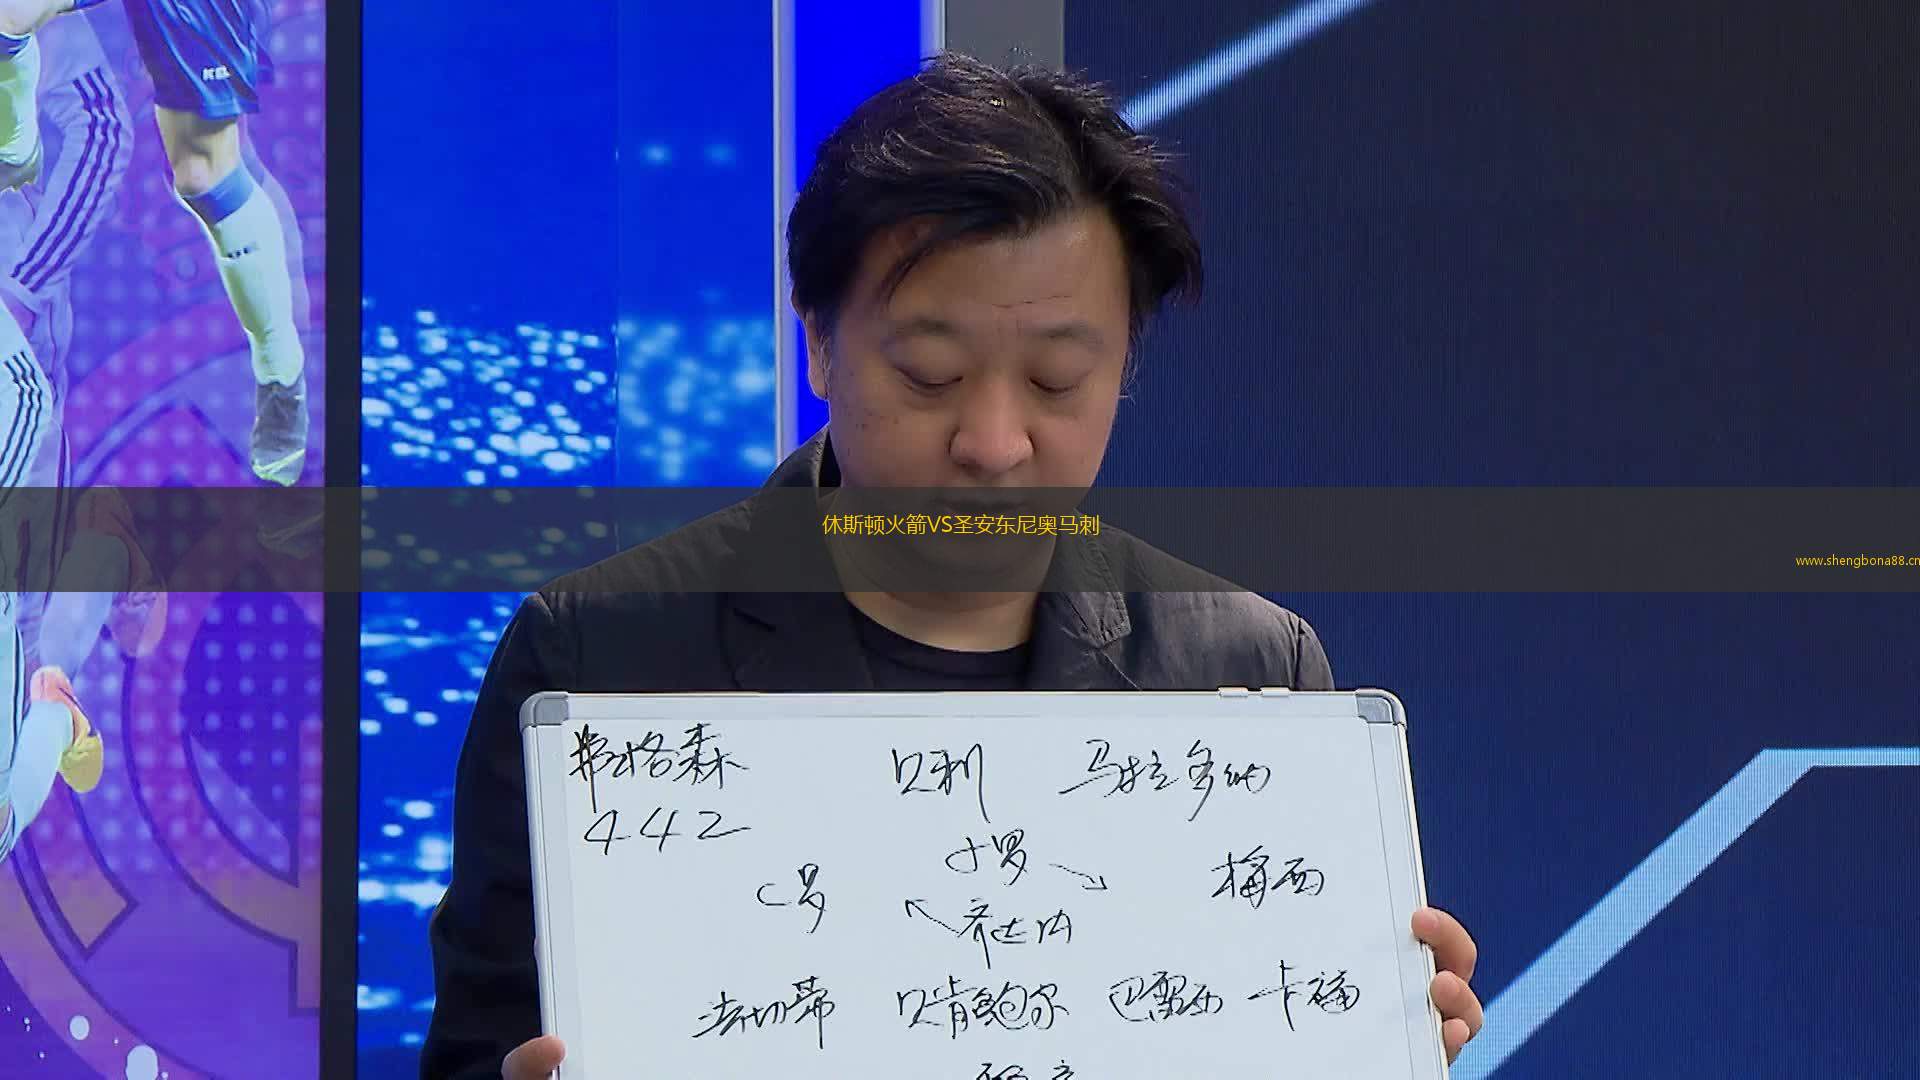 KEL
休斯顿火箭VS圣安东尼奥马刺
www.shengbona88.cn
弗格森 贝利 马拉多纳
442
小罗
C罗 梅西
齐达内
法切蒂 贝肯鲍尔 巴雷西 卡福